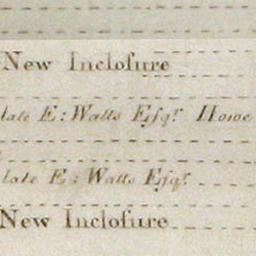 New Incloſure
late E : Watts Eſqr. Home
late E : Watts Eſqr.
New Incloſure